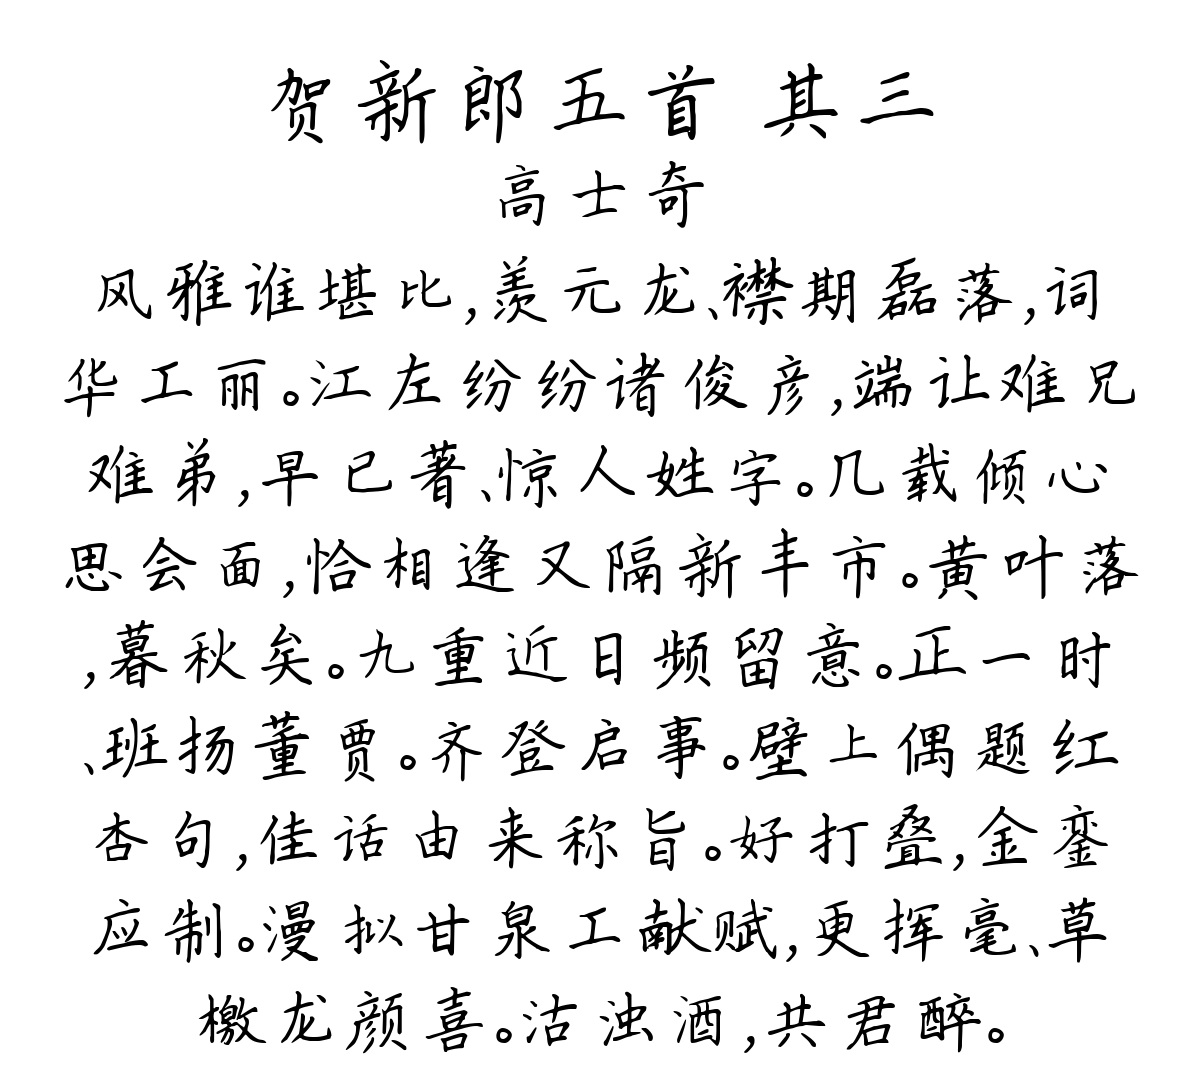 贺新郎五首 其三
高士奇
风雅谁堪比,羡元龙、襟期磊落,词
华工丽。江左纷纷诸俊彦,端让难兄
难弟,早已著、惊人姓字。几载倾心
思会面,恰相逢又隔新丰市。黄叶落
,暮秋矣。九重近日频留意。正一时
、班扬董贾。齐登启事。壁上偶题红
杏句,佳话由来称旨。好打叠,金銮
应制。漫拟甘泉工献赋,更挥毫、草
檄龙颜喜。沽浊酒,共君醉。